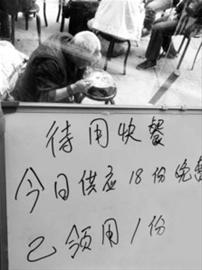 待用快餐
今日供应18份免费
已领用1份